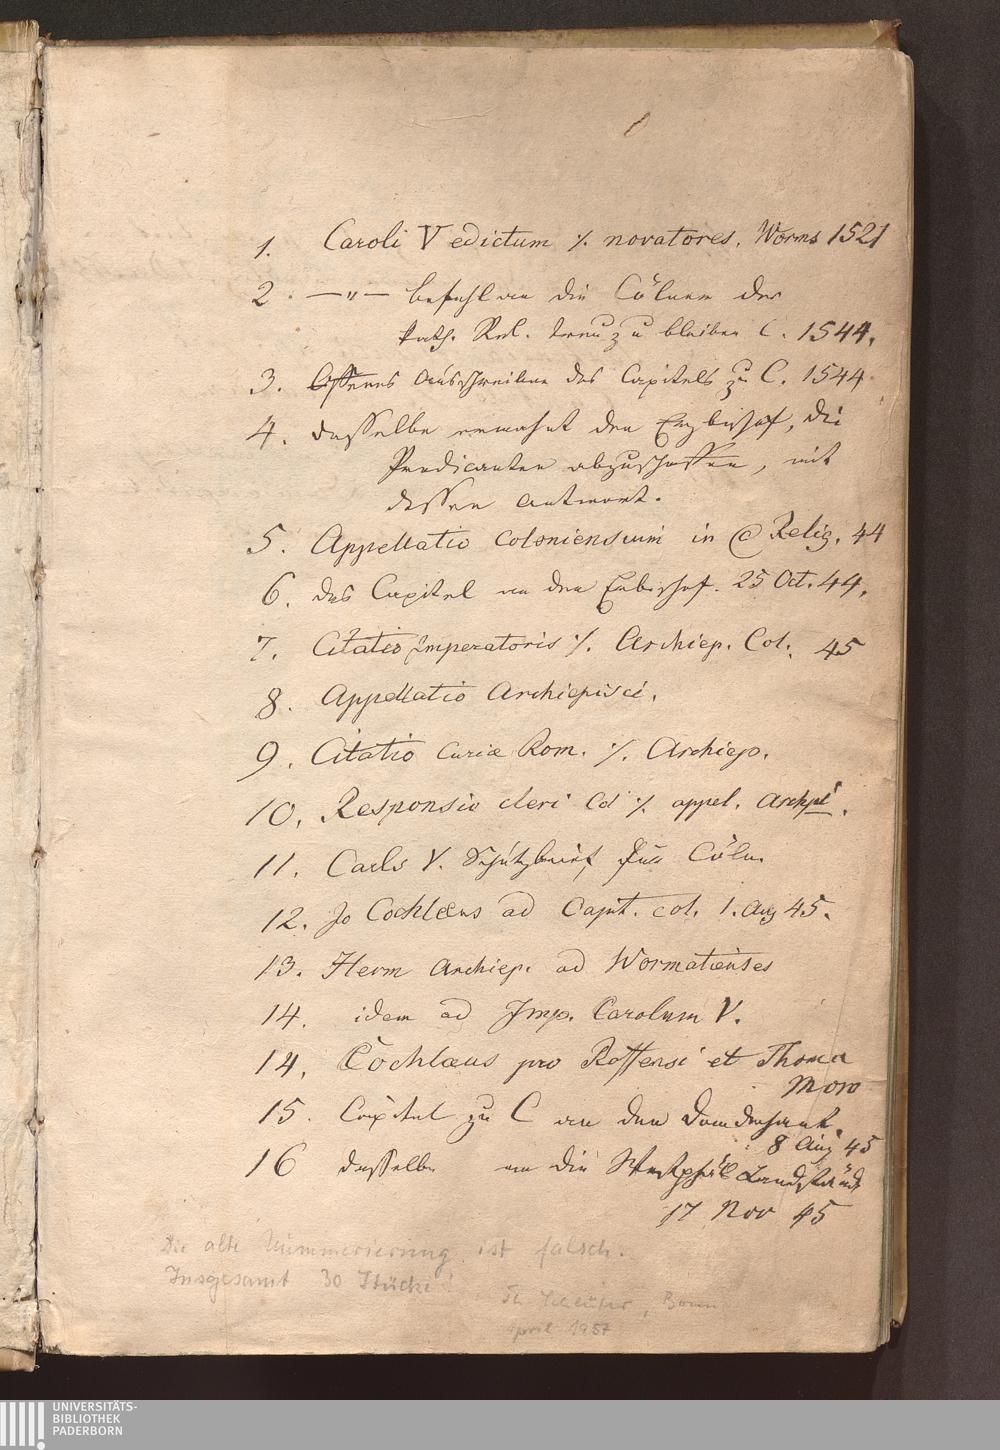 1. Caroli V edictum ./. novatores. Worms 1521
2. —"— befehl an die Cölner der
kath. Rel. treu zu bleiben C. 1544.
3. Ausschreiben des Capitels zu C. 1544
4. dasselbe ermahnt den Erzbischof, die
Predicanten abzuschaffen, mit
dessen Antwort.
5. Appellatio Coloniensium in C Relig. 44
6. das Capitel an den Erzbischof. 25 Oct. 44.
7. Citatio Imperatoris ./. Archiep. Col. 45
8. Appellatio Archiepisci.
9. Citatio Curiæ Rom. ./. Archiep.
10. Responsio cleri Col ./. appel. Archpi.
11. Carls V. Schutzbrief für Cöln.
12. Jo Cochlæus ad Capit. col. 1. Aug 45.
13. Herm Archiep. ad Wormatienses
14. idem ad Imp. Carolum V.
14. Cochlæus pro Roffensi et Thoma
Moro
15. Capitel zu C an den
8 Aug 45
16 dasselbe an die Westphäl Landständ
17 Nov 45
Die alte Nummerierung ist falsch.
Insgesamt 30 Stücke!
Th Schlüter, Bonn
April 1957
UNIVERSITÄTS-
BIBLIOTHEK
PADERBORN